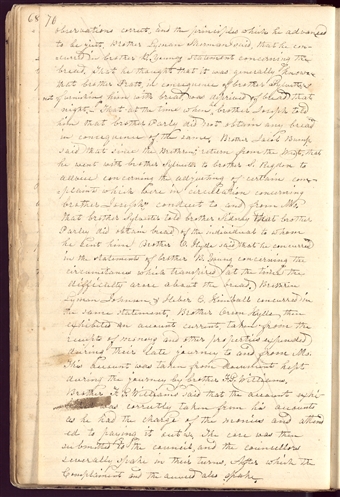 68 70
observations correct, and the principles which he advanced
to be just, Brother Lyman Sherman said, that he con-
curred in brother B. Young statement concerning the
bread, that he thought that it was generally known
that brother Pratt, in consequence of brother Sylvester
not furnishing him with bread was deprived of bread that
night. That at the time when brother Joseph told
him that brother Parley did not obtain any bread
in consequence of the same, Brother Jacob Bump
said that since the brethren return from the West, that
he went with brother Sylvester to brother S. Rigdon to
advise concerning the adjusting of certain com-
plaint which were in circulation concerning
brother Joseph's conduct to and from Mo.
That brother Sylvester told brother Sidney that brother
Parley did obtain bread of the individual to whom
he sent him. Brother O. Hyde said that he concurred
in the statements of brother B. Young concerning the
circumstance which transpired at the time the
difficulty arose about the bread, Brethren
Lyman Johnson, & Heber C. Kimball concurred in
the same statement, Brother Orson Hyde, then
exhibited an account current, taken from the
receipts of moneys and other properties expended
during their late journey to and from Mo.
This account was taken from document kept
during the journey by brother F.G. Williams.
Brother F. G. Williams said that the account
was correctly taken from his accounts
as he had the charge of the monies and attend
ed to paying it out. The case was then
submitted to the council, and the councellors
severally spake in their turns, After which the
Complainant and the accused also spake,